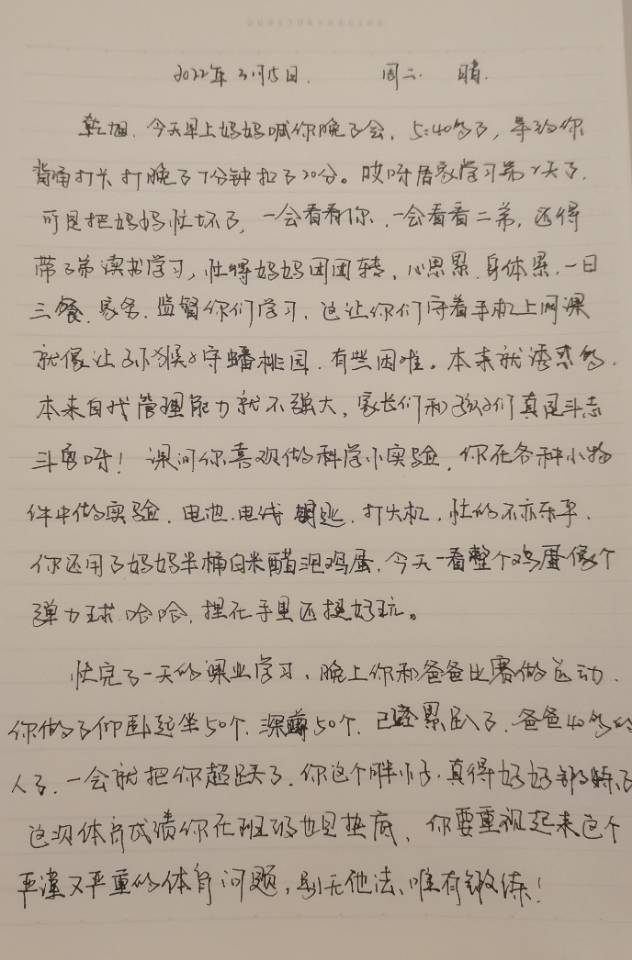 2022年3月15日. 周二. 晴.
乾旭、今天早上妈妈喊你晚了会, 5:40多了, 导致你
背诵打卡打晚了7分钟扣了20分。哎呀居家学习第2天了,
可是把妈妈忙坏了, 一会看看你, 一会看看二弟, 还得
带三弟读书学习, 忙得妈妈团团转, 心思累、身体累, 一日
三餐、家务、监督你们学习, 这让你们守着手机上网课
就像让孙猴子守蟠桃园, 有些困难。本来就诱惑多,
本来自我管理能力就不强大, 家长们和孩子们真是斗志
斗勇呀! 课间你喜欢做科学小实验, 你在各种小物
件中做实验, 电池、电线、钥匙、打火机, 忙的不亦乐乎,
你还用了妈妈半桶白米醋泡鸡蛋, 今天一看整个鸡蛋像个
弹力球, 哈哈, 捏在手里还挺好玩。
忙完了一天的课业学习, 晚上你和爸爸比赛做运动,
你做了仰卧起坐50个, 深蹲50个, 已经累趴了, 爸爸40多的
人了, 一会就把你超跃了, 你这个胖小子, 真得好好锻炼了
这次体育成绩你在班级也是垫底, 你要重视起来这个
严谨又严重的体育问题, 别无他法, 唯有锻练!